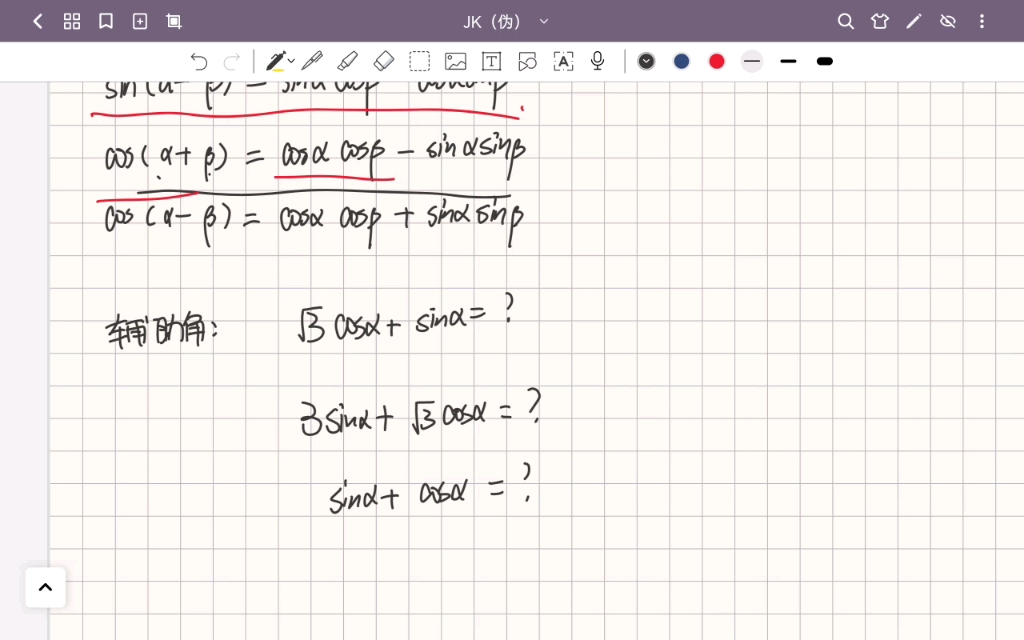 JK（伪）
sin(α-β) = sinα cosβ - cosαsinβ
cos(α+β) = cosα cosβ - sinαsinβ
cos(α-β) = cosα cosβ + sinαsinβ
辅助角: √3 cosα + sinα = ?
3sinα + √3 cosα = ?
sinα + cosα = ?